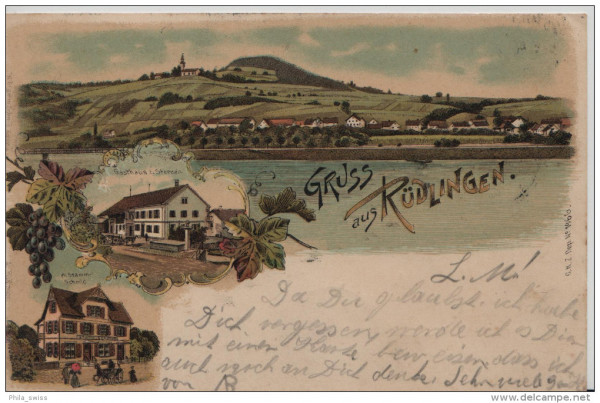 GRUSS
aus RÜDLINGEN.
Gasthaus z. Sternen
L. M!
Da Du glaubst ich habe
Dich vergessen, werde ich es Dir
mit einer Karte beweisen, dass ich
auch noch an Dich denke. Sehr viele
von B
Phila_swiss
delcampe.net